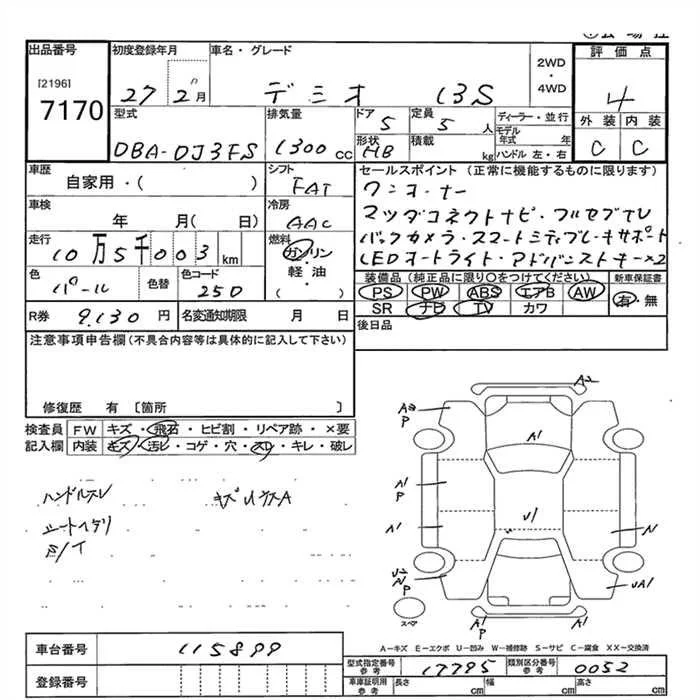 出品番号
[2196]
7170
初度登録年月
27 2月
車名・グレード
デミオ 13S
2WD
・
4WD
評価点
4
外装 内装
C C
型式
DBA-DJ3FS
排気量
1300 cc
ドア
5
定員
5 人
ディーラー・並行
モデル年式 年
ハンドル 左・右
形状
HB
積載
kg
車歴
自家用・( )
シフト
FAT
車検
年 月( 日)
冷房
AAC
走行
10万5千003 km
燃料
ガソリン
・
軽油
( )
色
パール
色替
色コード
25D
R券 9,130 円
名変通知期限 月 日
セールスポイント(正常に機能するものに限ります)
ワンオーナー
マツダコネクトナビ・フルセグTV
バックカメラ・スマートシティブレーキサポート
LEDオートライト・アドバンストキー×2
装備品(純正品に限り○をつけてください)
PS PW ABS エアB AW
SR ナビ TV カワ
新車保証書
有・無
後日品
注意事項申告欄(不具合内容等は具体的に記入して下さい)
修復歴 有 〔箇所 〕
検査員記入欄
FW キズ・飛石・ヒビ割・リペア跡・×要
内装 キズ・汚レ・コゲ・穴・スレ・キレ・破レ
ハンドルスレ
キズ
シートヘタリ
A2
P
A1
A1
P
A1
U1
N
UA1
P
A1
P
A1
スペア
A-キズ E-エクボ U-凹み W-補修跡 S-サビ C-腐食 XX-交換済
車台番号 115899
登録番号
型式指定番号 参考 17795
類別区分番号 参考 0052
車庫証明用 参考 長さ cm 幅 cm 高さ cm